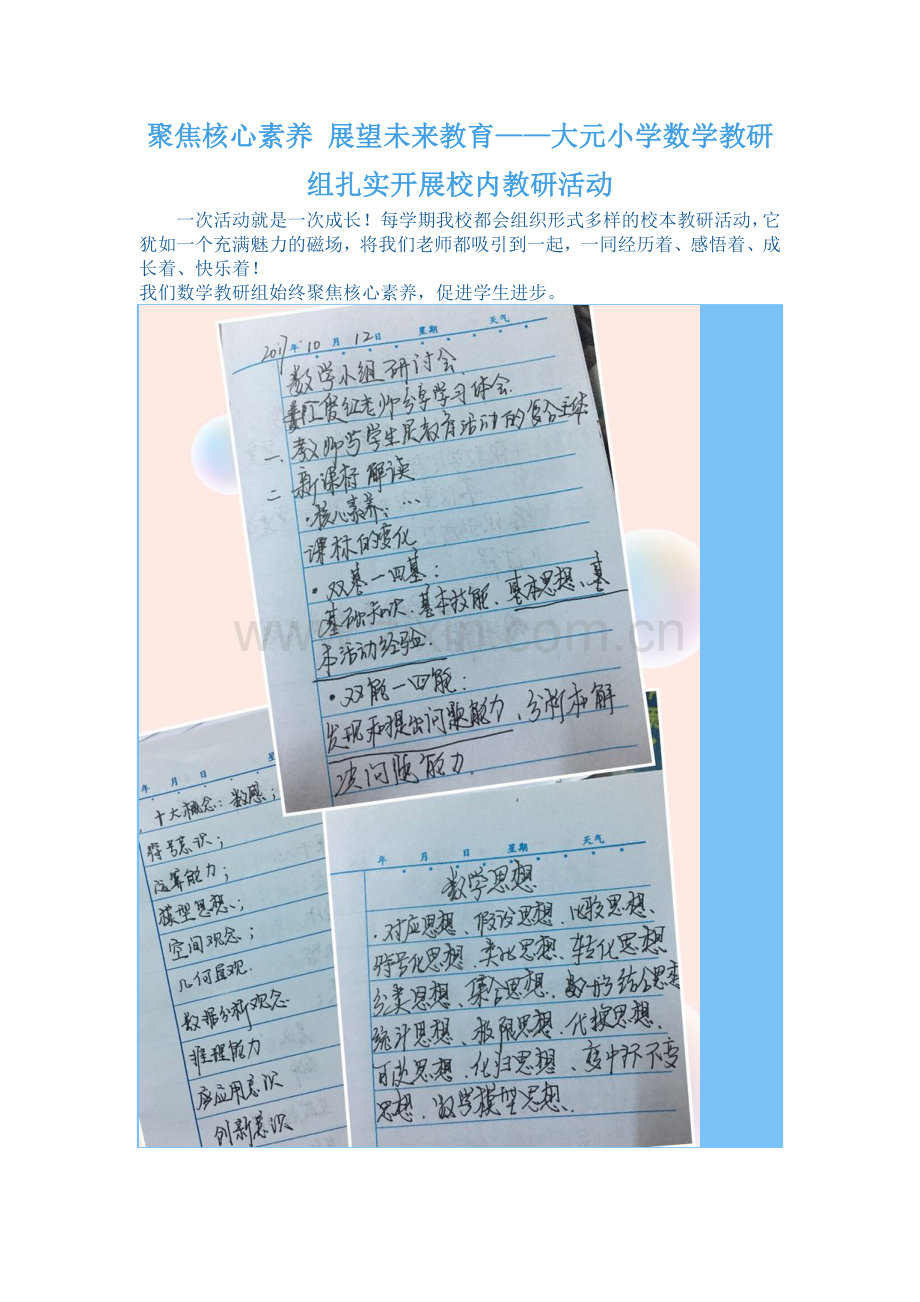 聚焦核心素养 展望未来教育——大元小学数学教研
组扎实开展校内教研活动
一次活动就是一次成长！每学期我校都会组织形式多样的校本教研活动，它
犹如一个充满魅力的磁场，将我们老师都吸引到一起，一同经历着、感悟着、成
长着、快乐着！
我们数学教研组始终聚焦核心素养，促进学生进步。
2017年10月12日 星期 天气
数学小组研讨会
爱红老师分享学习体会
一、教师与学生是教育活动的复合主体
二 新课标解读
·核心素养：…
课标的变化
·双基—四基：
基础知识、基本技能、基本思想、基
本活动经验.
·双能—四能：
发现和提出问题能力、分析和解
决问题能力.
年 月 日 星
十大概念：数感；
符号意识；
运算能力；
模型思想、；
空间观念；
几何直观.
数据分析观念
推理能力
应用意识
创新意识
年 月 日 星期 天气
数学思想
·对应思想、假设思想、比较思想、
符号化思想、类比思想、转化思想
分类思想、集合思想、数形结合思想
统计思想、极限思想、代换思想、
可逆思想、化归思想、变中抓不变
思想、数学模型思想.